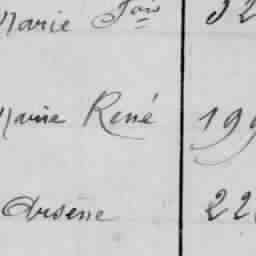 Marie Fois 32
Marie René 199
Arsène 22